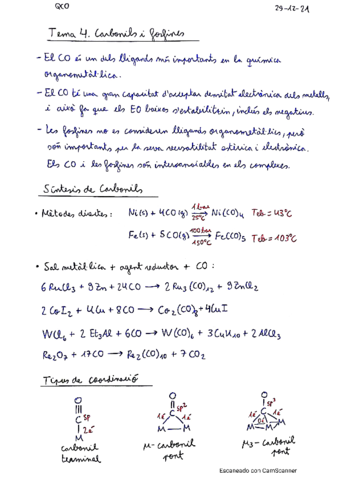 QCO 29-12-21
Tema 4. Carbonils i fosfines
- El CO és un dels lligands més importants en la química
organometàl·lica.
- El CO té una gran capacitat d'acceptar densitat electrònica dels metalls,
i això fa que els EO baixos s'estabilitzin, inclús els negatius.
- Les fosfines no es consideren lligands organometàl·lics, però
són importants per la seva versatilitat estèrica i electrònica.
Els CO i les fosfines són intercanviables en els complexes.
Síntesis de Carbonils
• Mètodes directes: Ni(s) + 4CO(g) 1 bar 25ºC → Ni(CO)4 Teb = 43ºC
Fe(s) + 5CO(g) 100 bar 150ºC → Fe(CO)5 Teb = 103ºC
• Sal metàl·lica + agent reductor + CO:
6 RuCl3 + 9Zn + 24CO → 2 Ru3(CO)12 + 9ZnCl2
2 CoI2 + 4Cu + 8CO → Co2(CO)8 + 4CuI
WCl6 + 2 Et3Al + 6CO → W(CO)6 + 3C4H10 + 2AlCl3
Re2O7 + 17CO → Re2(CO)10 + 7CO2
Tipus de coordinació
O O O
C sp C sp2 C sp3
2é 1é 1é 1é 1é
M M M M M M
carbonil μ-carbonil μ3-carbonil
terminal pont pont
Escaneado con CamScanner